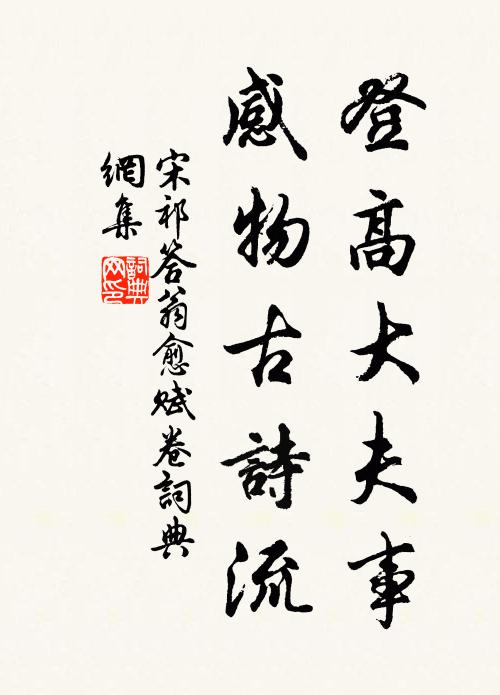 登高大夫事
感物古詩流
宋祁答翁愈賦卷詞典
網集
詞典
网印